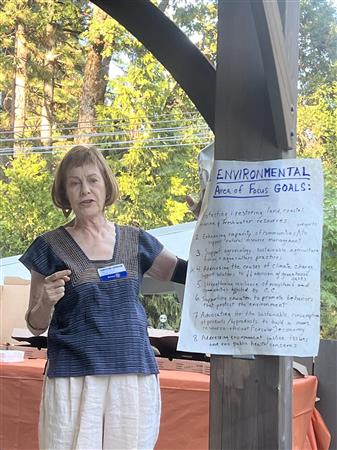 ENVIRONMENTAL
Area of Focus GOALS:
Protecting & restoring land, coastal,
marine & freshwater resources
2. Enhancing capacity of communities to
support natural resource management
3. Support agroecology, sustainable agriculture
aquaculture practices
4. Addressing the causes of climate change
solutions to
5. Strengthening resilience of
affected by C.C.
6. Supporting education to promote behaviors
that protect the environment
7. Advocating for the sustainable consumption
of products / byproducts to build a more
resource-efficient "circular" economy
8. Addressing environment justice issues
and public health concerns